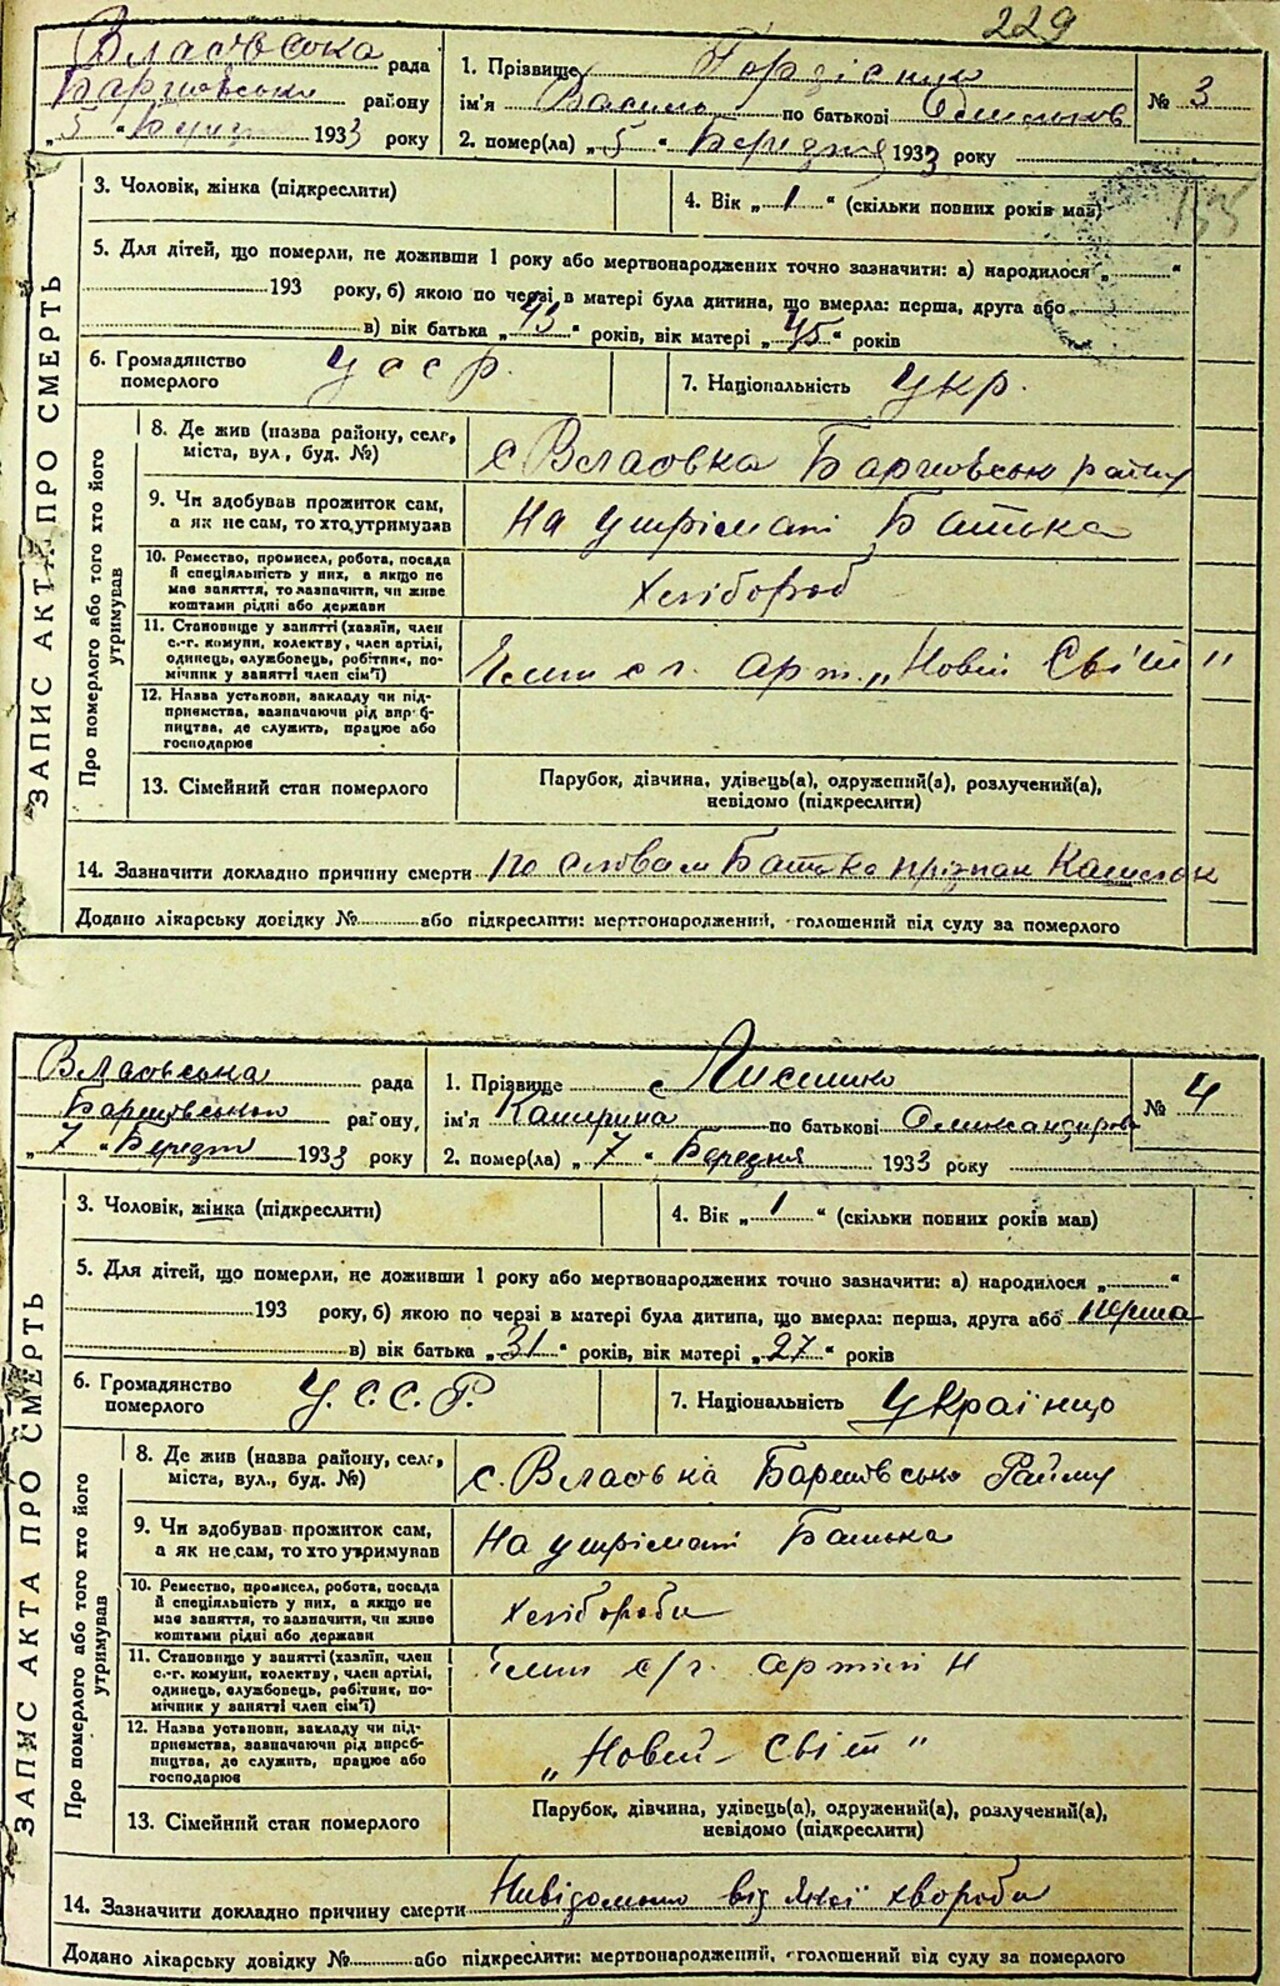 229
Власівська рада
Барвівського району
„5“ Березня 1933 року
1. Прізвище
ім'я Василь по батькові
2. помер(ла) „5“ Березня 1933 року
№ 3
ЗАПИС АКТА ПРО СМЕРТЬ
3. Чоловік, жінка (підкреслити)
4. Вік „1“ (скільки повних років мав)
135
5. Для дітей, що померли, не доживши 1 року або мертвонароджених точно зазначити: а) народилося „ “
193 року, б) якою по черзі в матері була дитина, що вмерла: перша, друга або
в) вік батька „43“ років, вік матері „45“ років
6. Громадянство померлого
УССР.
7. Національність Укр.
Про померлого або того хто його утримував
8. Де жив (назва району, села, міста, вул., буд. №)
с Власовка
9. Чи здобував прожиток сам, а як не сам, то хто утримував
На утрімані Батька
10. Ремество, промисел, робота, посада й спеціяльність у них, а якщо не має заняття, то зазначити, чи живе коштами рідні або держави
Хлібороб
11. Становище у занятті (хазяїн, член с.-г. комуни, колективу, член артілі, одинець, службовець, робітник, помічник у занятті член сім'ї)
Член с г. арт. „Новий Світ"
12. Назва установи, закладу чи підприємства, зазначаючи рід виробництва, де служить, працює або господарює
13. Сімейний стан померлого
Парубок, дівчина, удівець(а), одружений(а), розлучений(а), невідомо (підкреслити)
14. Зазначити докладно причину смерти по словам Батька
Додано лікарську довідку № або підкреслити: мертвонароджений, оголошений від суду за померлого
Власівська рада
району,
„7“ Березня 1933 року
1. Прізвище Лисенко
ім'я Катерина по батькові Олександрова
2. помер(ла) „7“ Березня 1933 року
№ 4
ЗАПИС АКТА ПРО СМЕРТЬ
3. Чоловік, жінка (підкреслити)
4. Вік „1“ (скільки повних років мав)
5. Для дітей, що померли, не доживши 1 року або мертвонароджених точно зазначити: а) народилося „ “
193 року, б) якою по черзі в матері була дитина, що вмерла: перша, друга або перша
в) вік батька „31“ років, вік матері „27“ років
6. Громадянство померлого
У.С.С.Р.
7. Національність
Про померлого або того хто його утримував
8. Де жив (назва району, села, міста, вул., буд. №)
с. Власовка
9. Чи здобував прожиток сам, а як не сам, то хто утримував
На утрімані Батька
10. Ремество, промисел, робота, посада й спеціяльність у них, а якщо не має заняття, то зазначити, чи живе коштами рідні або держави
Хлібороби
11. Становище у занятті (хазяїн, член с.-г. комуни, колективу, член артілі, одинець, службовець, робітник, помічник у занятті член сім'ї)
Член с/г. артілі
12. Назва установи, закладу чи підприємства, зазначаючи рід виробництва, де служить, працює або господарює
„Новий Світ"
13. Сімейний стан померлого
Парубок, дівчина, удівець(а), одружений(а), розлучений(а), невідомо (підкреслити)
14. Зазначити докладно причину смерти Невідомо від якої хвороби
Додано лікарську довідку № або підкреслити: мертвонароджений, оголошений від суду за померлого